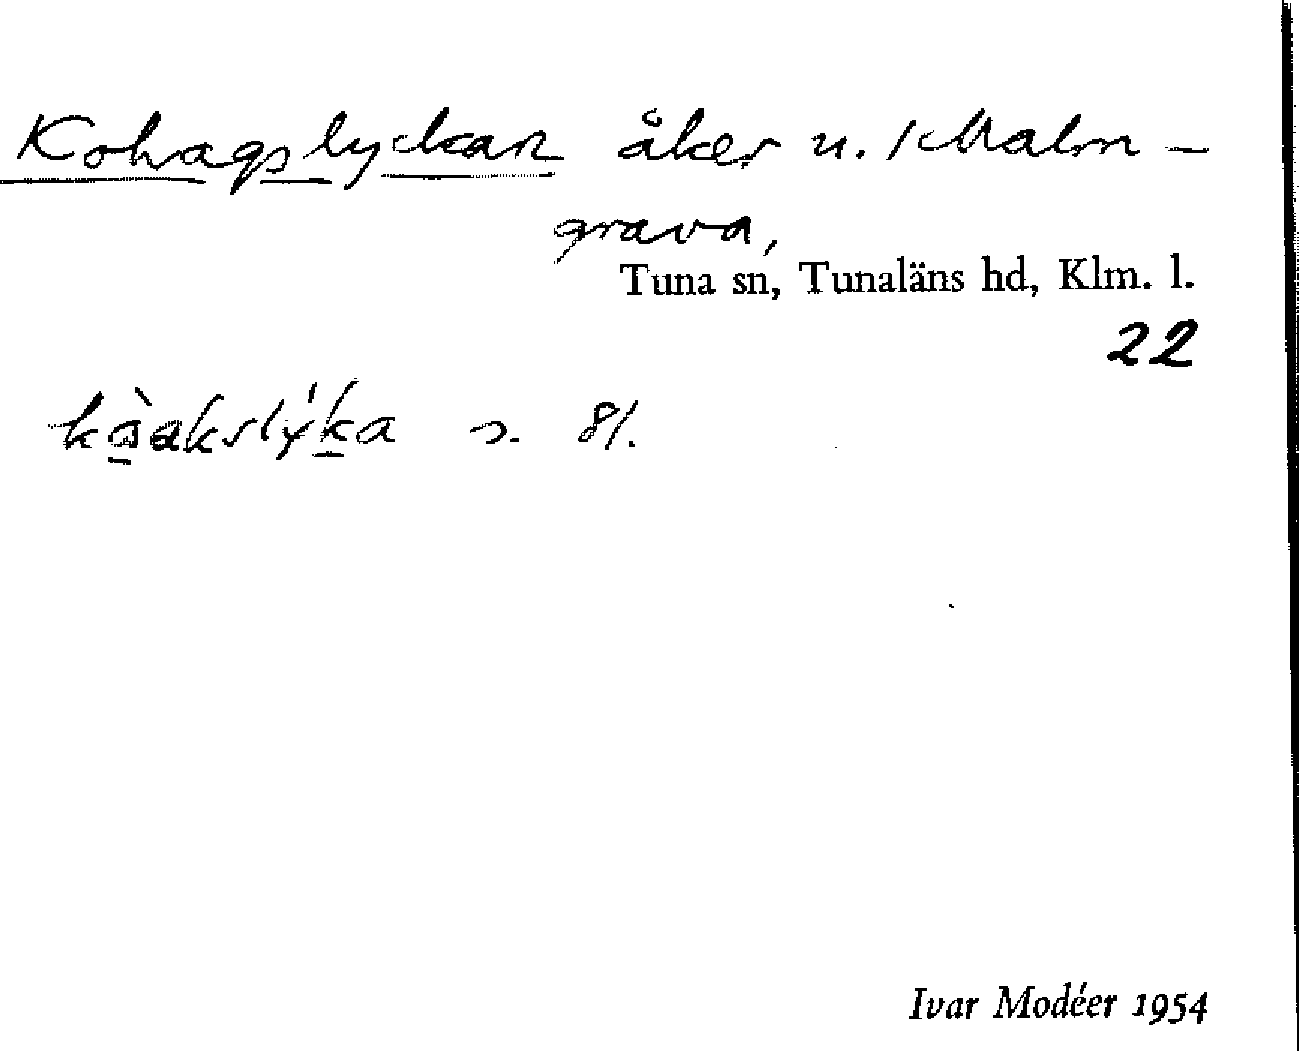 Kohagslyckan åker u. /Malm-
grava,
Tuna sn, Tunaläns hd, Klm. l.
22
s. 81.
Ivar Modéer 1954